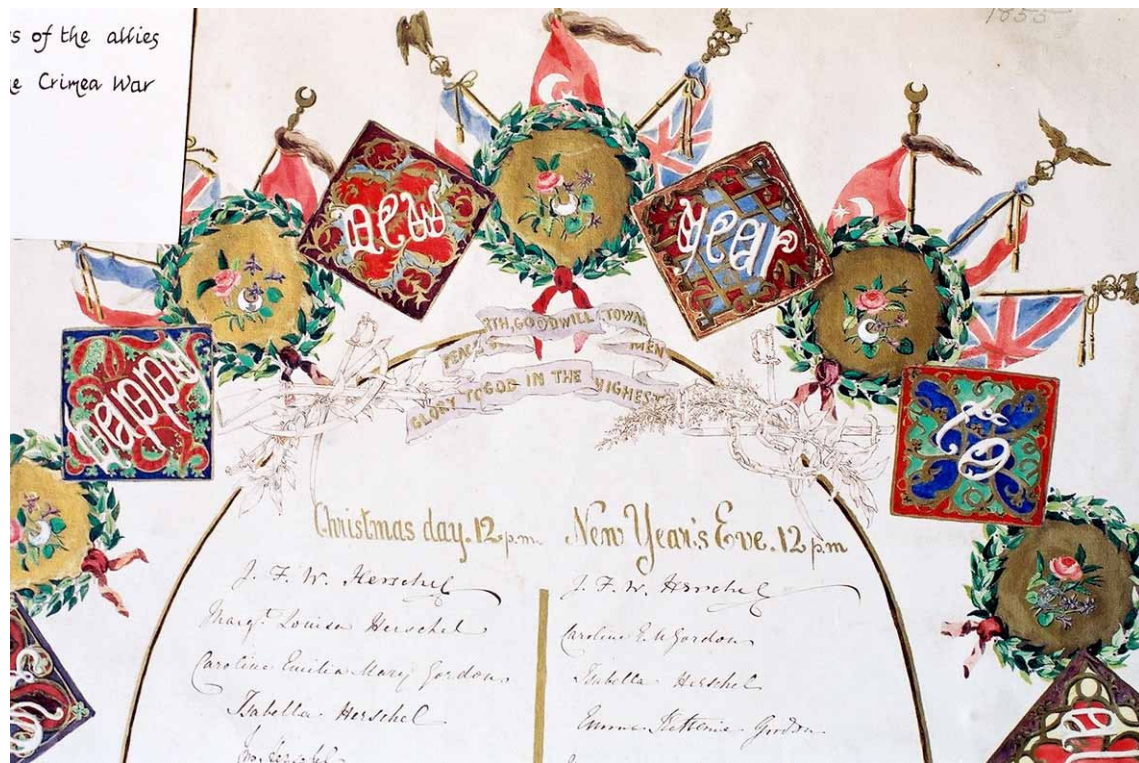 s of the allies
e Crimea War
1855
happy
new
year
to
TH, GOODWILL TOWA
PEACE MEN
GLORY TO GOD IN THE HIGHEST
Christmas day. 12 p.m. New Year's Eve. 12 p.m
J. F. W. Herschel
Margt. Louisa Herschel
Caroline Emilia Mary Gordon
Isabella Herschel
J. F. W. Herschel
Caroline E. M Gordon
Isabella Herschel
Gordon